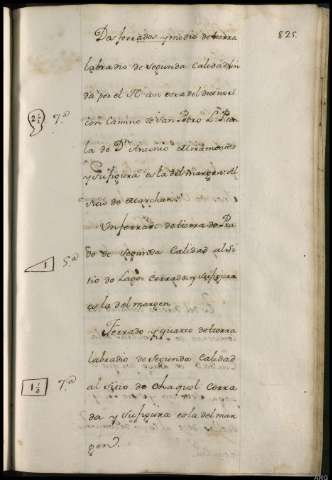 825
Dos ferrados y medio de tierra
labradio de segunda calidad
da por el N. con era del
2½ 7.ª con camino de San Pedro
la de Dn. Antonio
y su figura es la del margen al
sitio de
Un ferrado de tierra de Pra
do de segunda Calidad al Si
1 5.ª tio de Lago Cerrada y su figura
es la del margen
Ferrado y quarto de tierra
labradio de segunda Calidad
1¼ 7.ª al Sitio de Chaqol Cerra
da y su figura es la del mar
gen.